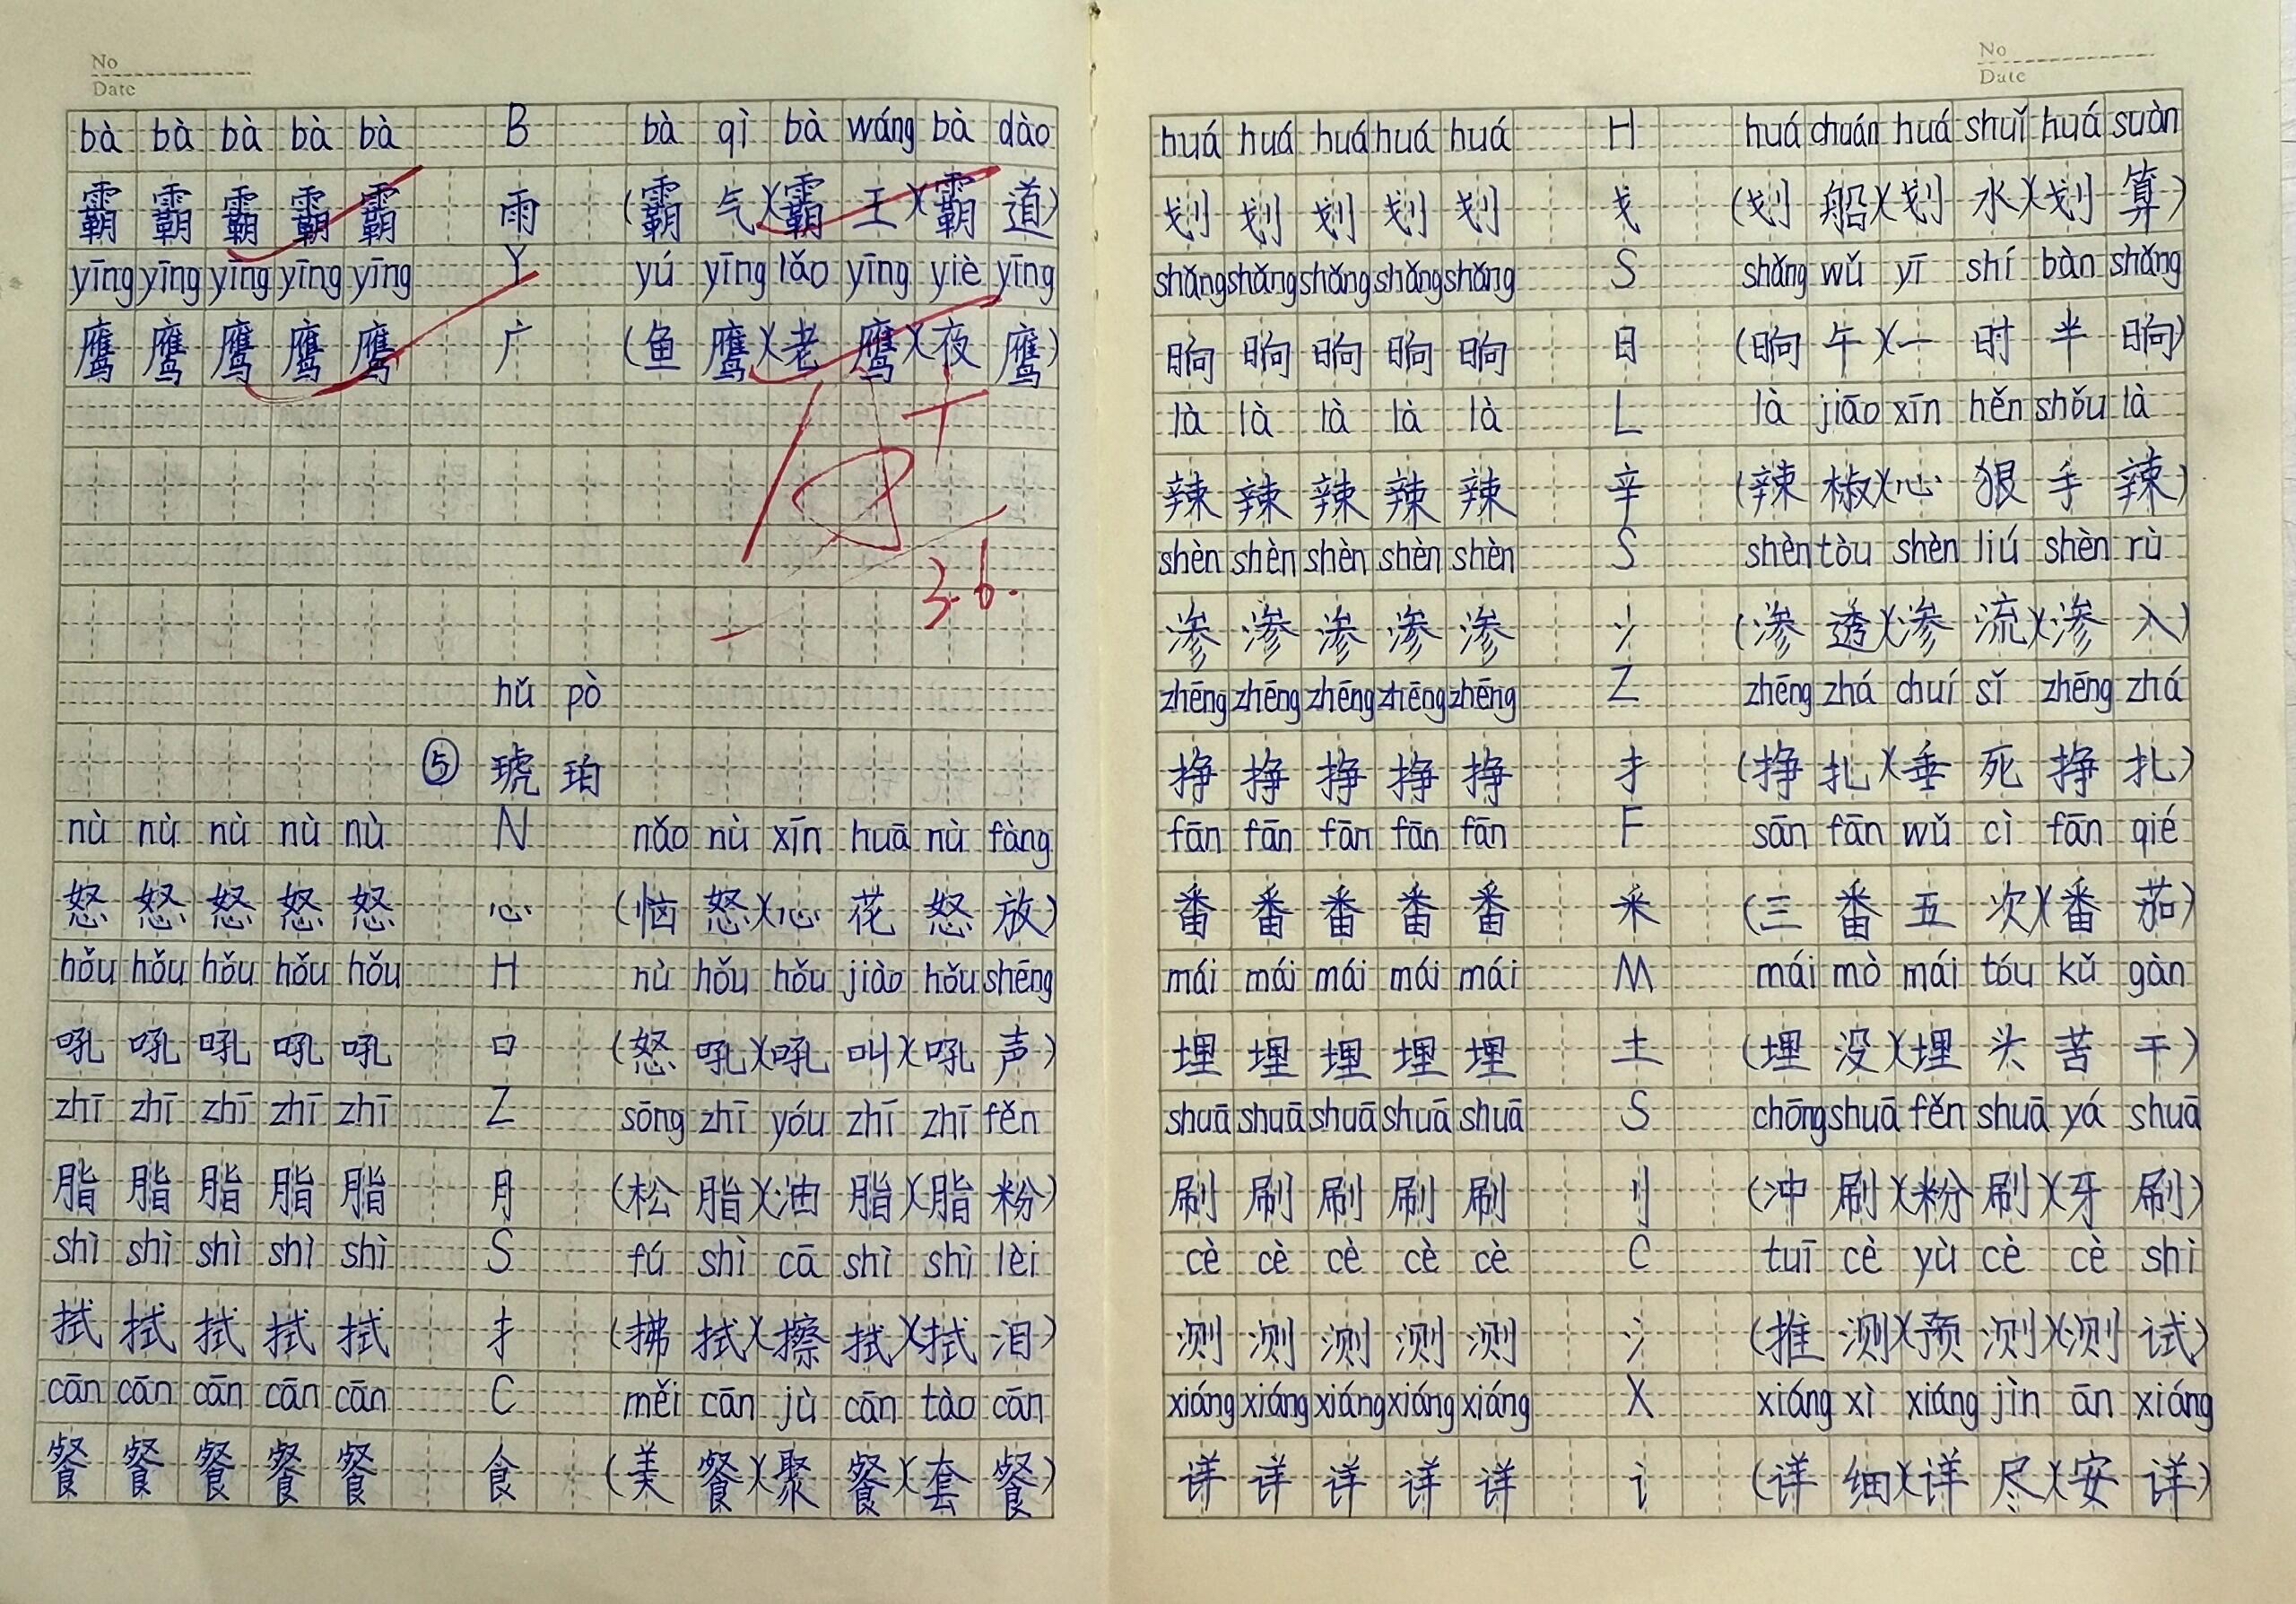 No
Date
bà bà bà bà bà B bà qì bà wáng bà dào
霸 霸 霸 霸 霸 雨 (霸 气)(霸 王)(霸 道)
yīng yīng yīng yīng yīng Y yú yīng lǎo yīng yiè yīng
鹰 鹰 鹰 鹰 鹰 广 (鱼 鹰)(老 鹰)(夜 鹰)
3.6.
hǔ pò
⑤ 琥 珀
nù nù nù nù nù N nǎo nù xīn huā nù fàng
怒 怒 怒 怒 怒 心 (恼 怒)(心 花 怒 放)
hǒu hǒu hǒu hǒu hǒu H nù hǒu hǒu jiào hǒu shēng
吼 吼 吼 吼 吼 口 (怒 吼)(吼 叫)(吼 声)
zhī zhī zhī zhī zhī Z sōng zhī yóu zhī zhī fěn
脂 脂 脂 脂 脂 月 (松 脂)(油 脂)(脂 粉)
shì shì shì shì shì S fú shì cā shì shì lèi
拭 拭 拭 拭 拭 扌 (拂 拭)(擦 拭)(拭 泪)
cān cān cān cān cān C měi cān jù cān tào cān
餐 餐 餐 餐 餐 食 (美 餐)(聚 餐)(套 餐)
No
Date
huá huá huá huá huá H huá chuán huá shuǐ huá suàn
划 划 划 划 划 戈 (划 船)(划 水)(划 算)
shǎng shǎng shǎng shǎng shǎng S shǎng wǔ yī shí bàn shǎng
晌 晌 晌 晌 晌 日 (晌 午)(一 时 半 晌)
là là là là là L là jiāo xīn hěn shǒu là
辣 辣 辣 辣 辣 辛 (辣 椒)(心 狠 手 辣)
shèn shèn shèn shèn shèn S shèn tòu shèn liú shèn rù
渗 渗 渗 渗 渗 氵 (渗 透)(渗 流)(渗 入)
zhēng zhēng zhēng zhēng zhēng Z zhēng zhá chuí sǐ zhēng zhá
挣 挣 挣 挣 挣 扌 (挣 扎)(垂 死 挣 扎)
fān fān fān fān fān F sān fān wǔ cì fān qié
番 番 番 番 番 釆 (三 番 五 次)(番 茄)
mái mái mái mái mái M mái mò mái tóu kǔ gàn
埋 埋 埋 埋 埋 土 (埋 没)(埋 头 苦 干)
shuā shuā shuā shuā shuā S chōng shuā fěn shuā yá shuā
刷 刷 刷 刷 刷 刂 (冲 刷)(粉 刷)(牙 刷)
cè cè cè cè cè C tuī cè yù cè cè shì
测 测 测 测 测 氵 (推 测)(预 测)(测 试)
xiáng xiáng xiáng xiáng xiáng X xiáng xì xiáng jìn ān xiáng
详 详 详 详 详 讠 (详 细)(详 尽)(安 详)